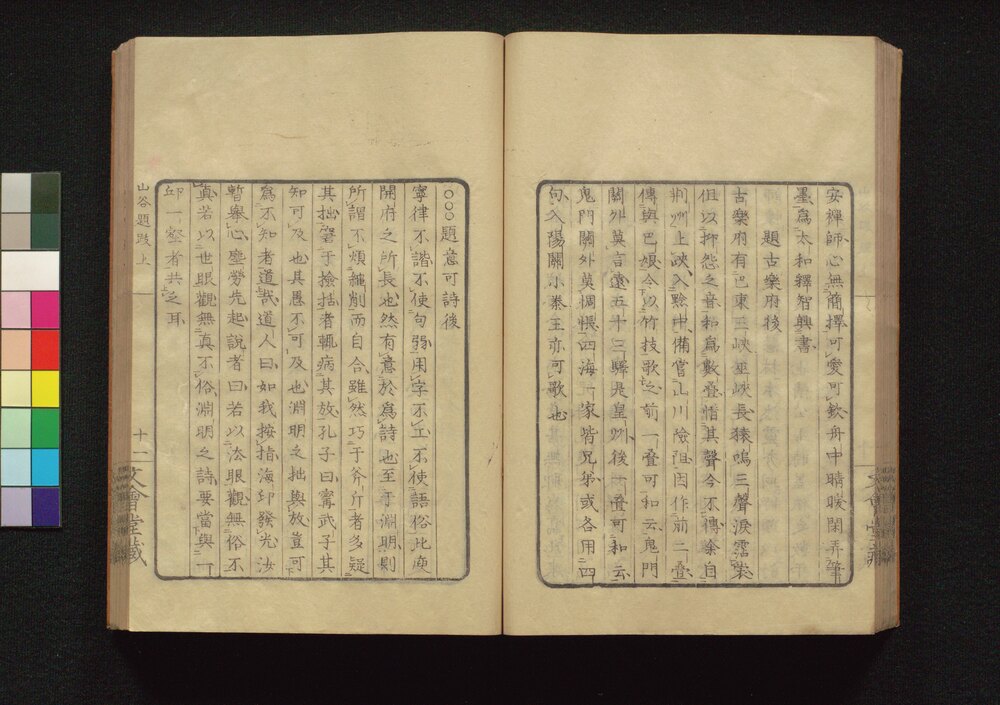 安禪師心無簡擇可愛可欽舟中晴暖閑弄筆
墨爲太和釋智興書
題古樂府後
古樂府有巴東三峽巫峽長猿鳴三聲淚霑裳
但以抑怨之音和爲數疊惜其聲今不傳余自
荆州上峽入黔中備嘗山川險阻因作前二疊
傳與巴娘令以竹枝歌之前一疊可和云鬼門
關外莫言遠五十三驛是皇州後一疊可和云
鬼門關外莫惆悵四海一家皆兄弟或各用四
句入陽關小秦王亦可歌也
○○○題意可詩後
寧律不諧不使句弱用字不工不使語俗此庾
開府之所長也然有意於爲詩也至于淵明則
所謂不煩繩削而自合雖然巧于斧斤者多疑
其拙窘于撿括者輒病其放孔子曰甯武子其
知可及也其愚不可及也淵明之拙與放豈可
爲不知者道哉道人曰如我按指海印發光汝
暫舉心塵勞先起說者曰若以法眼觀無俗不
真若以世眼觀無真不俗淵明之詩要當與一
邱一壑者共之耳
山谷題跋上
十一
文會堂藏